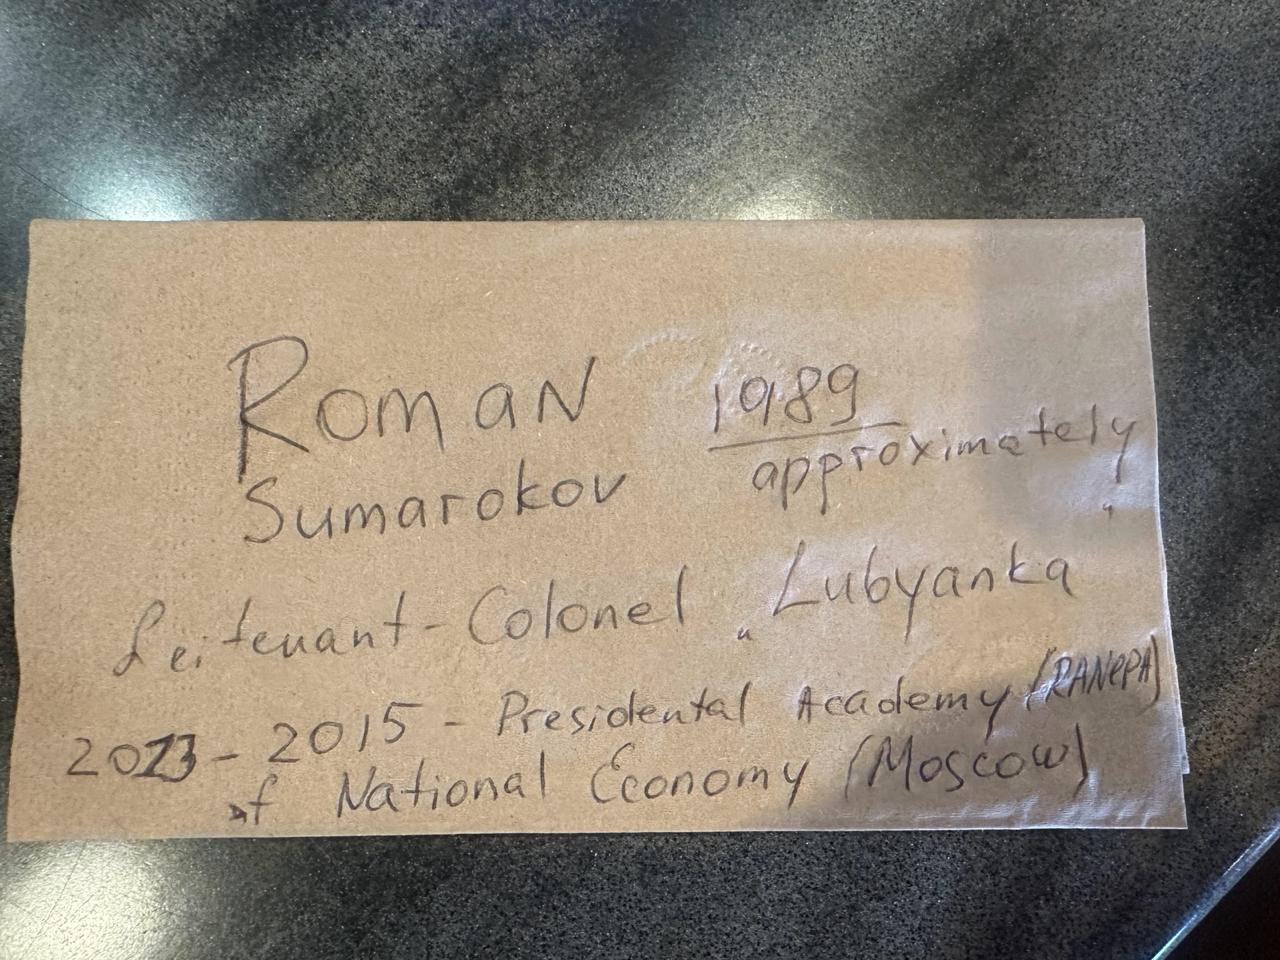 Roman
Sumarokov
1989
approximately
Leitenant-Colonel "Lubyanka"
2013-2015 - Presidental Academy (RANEPA)
of National Economy (Moscow)